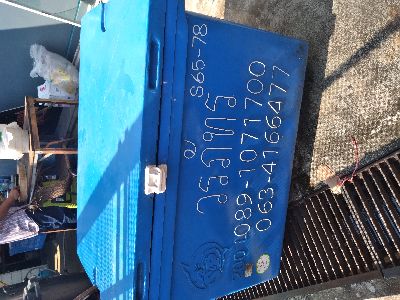 S65-78
วรภัทร์
200L
089-1071700
063-4166477